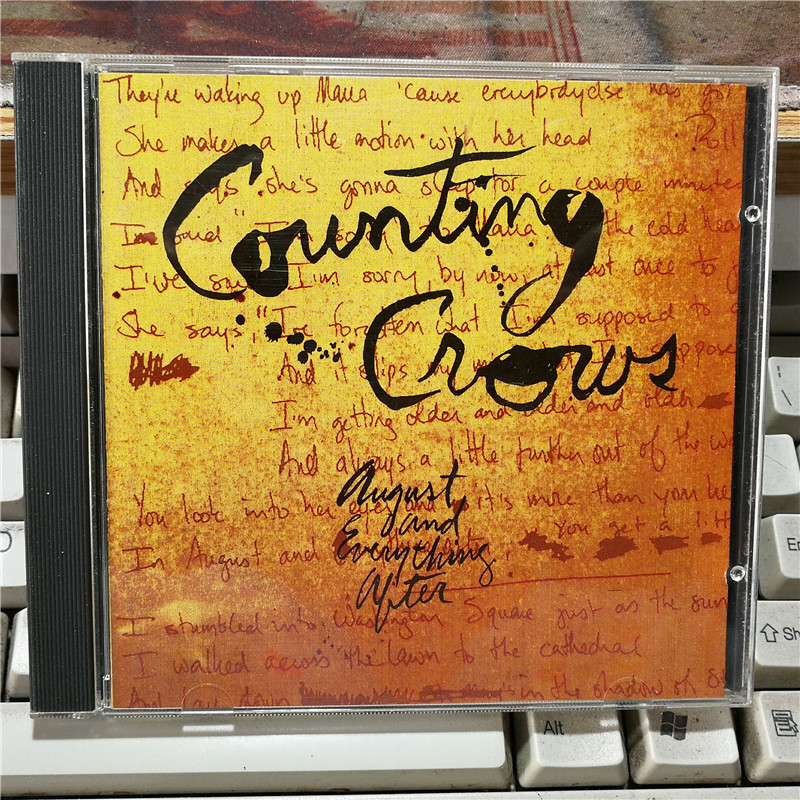 They're waking up Maria 'cause everybody else has got
She makes a little motion with her head
And says she's gonna sleep for a couple minutes
I said "I'm sorry" to Maria the cold hea
I've said I'm sorry, by now, at least once to
She says, "I've forgotten what I'm supposed to
And it slips my I'm suppose
I'm getting older and older and older
And always a little further out of the wa
You look into her eyes and it's more than you he
In August and You get a litt
I stumbled into Washington Square just as the sun
I walked across the lawn to the cathedral
And lay down in the shadow of S
Counting
Crows
August
and
Everything
After
En
Sh
Alt